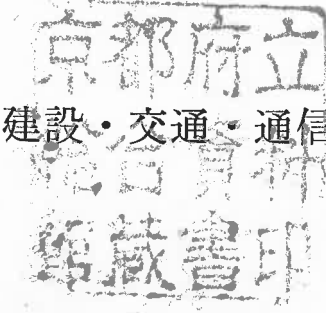 京都府立
建設・交通・通信
合資料
館蔵書印